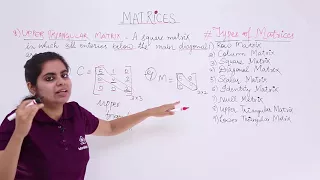 MATRICES
8) UPPER TRIANGULAR MATRIX - A square matrix
in which all entries below the main diagonal
C =
3×3
eg M =
2×2
upper
# Types of Matrices
1) Row Matrix
2) Column Matrix
3) Square Matrix
4) Diagonal Matrix
5) Scalar Matrix
6) Identity Matrix
7) Null Matrix
8) Upper Triangular Matrix
9) Lower Triangular Matrix